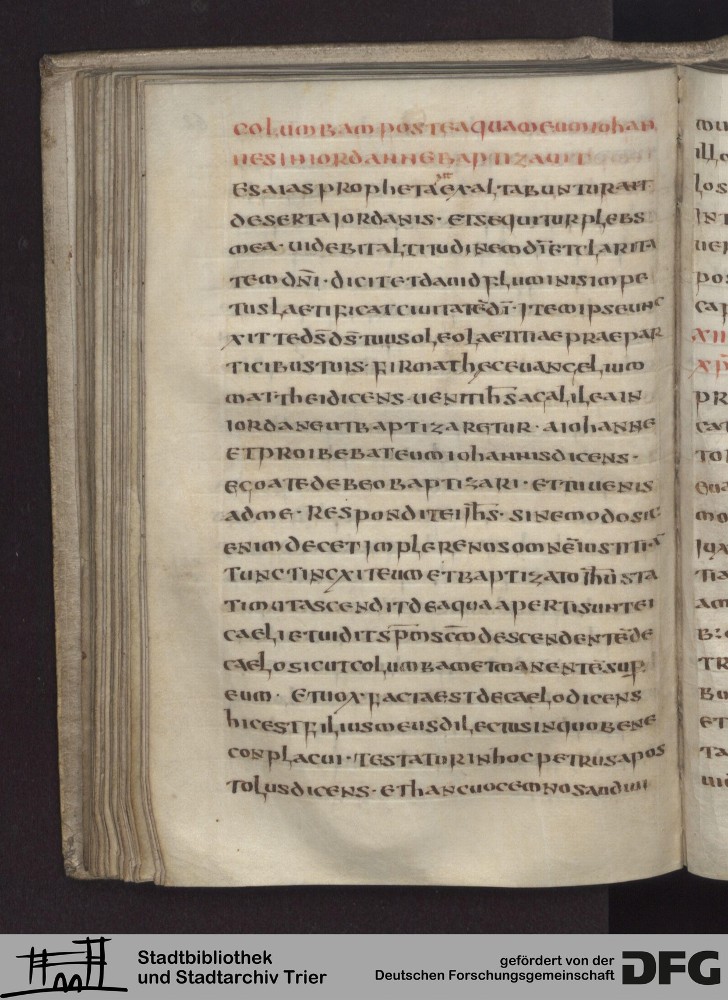 columbam postea quam eum iohan
nes in iordanne baptizauit
Esaias propheta exaltabuntur
deserta iordanis· et sequitur plebs
mea· uidebit altitudinem dī et clarita
tem dn̄i · dicit et dauid fluminis impe
tus laetificat ciuitatē dī· Item ipse unc
xit te ds̄ ds̄ tuus oleo laetitiae prae par
ticibus tuis· firmat hec euangelium
mattheι dicens· uenit ih̄s a galilea in
iordane ut baptizaretur · a iohanne
et proibebat eum iohannis dicens ·
ego a te debeo baptizari · et tu uenis
ad me · Respondit ei ih̄s · sine modo sic
enim decet implere nos omnē iustitiā
Tunc tincxit eum et baptizato ih̄u sta
tim ut ascendit de aqua aperti sunt ei
caeli et uidit sp̄m sc̄m descendentē de
caelo sicut columbam et manentē sup
eum · Et uox facta est de caelo dicens
hic est filius meus dilectus in quo bene
conplacui · Testatur in hoc petrus apos
tolus dicens · et hanc uocem nos audiui
Stadtbibliothek
und Stadtarchiv Trier
gefördert von der
Deutschen Forschungsgemeinschaft
DFG